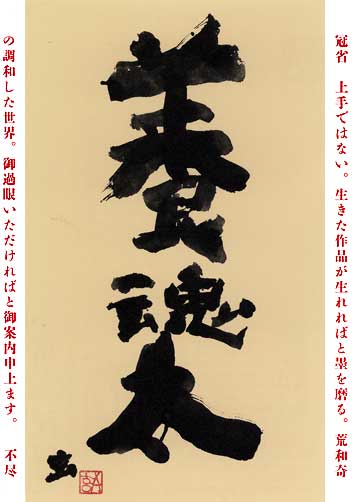 冠省　上手ではない。生きた作品が生れればと墨を磨る。荒和奇
養魂太
玄
の調和した世界。御過眼いただければと御案内申上ます。　不尽